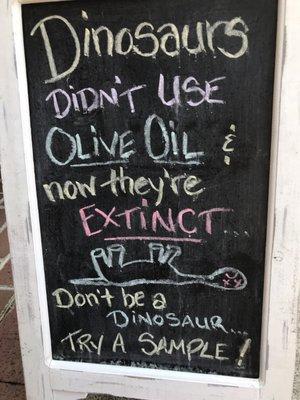 Dinosaurs
Didn't Use
Olive Oil &
now they're
Extinct...
Don't be a
Dinosaur...
Try A Sample!